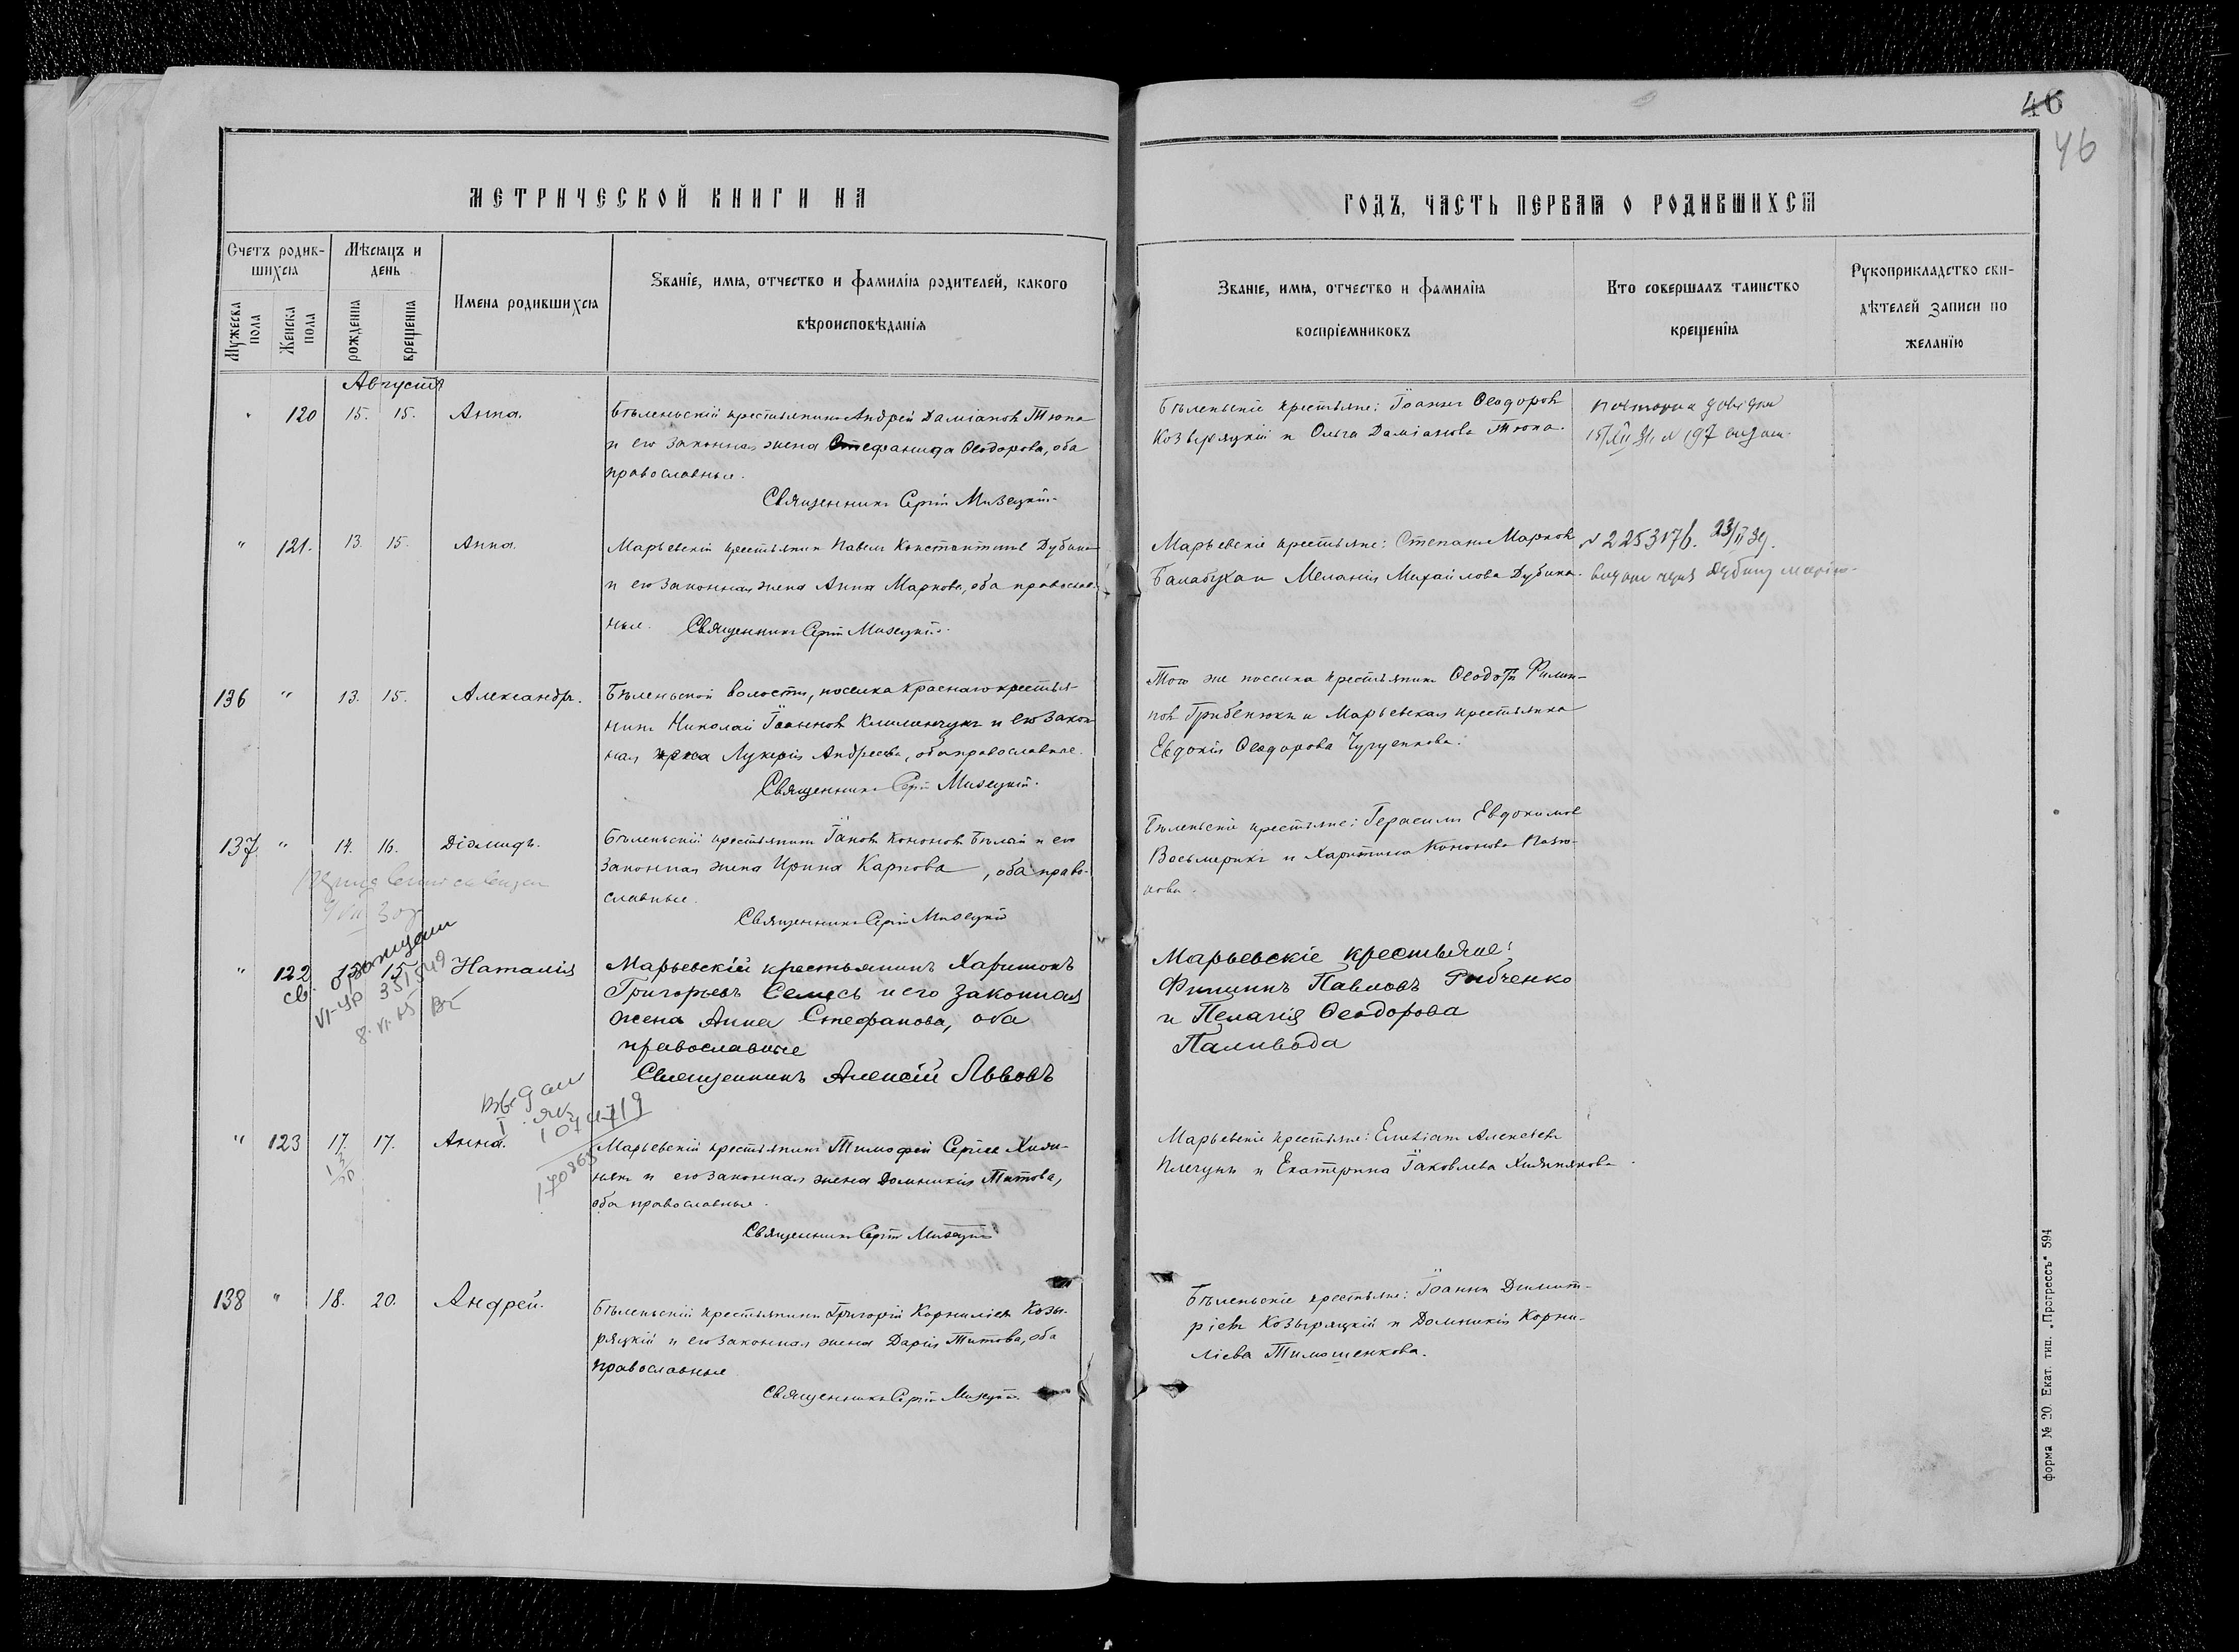 46
46
МЕТРИЧЕСКОЙ КНИГИ НА
ГОДЪ, ЧАСТЬ ПЕРВАЯ О РОДИВШИХСЯ
Счетъ родив-
шихся
Мужеска
пола
Женска
пола
Мѣсяцъ и
день
рожденія
крещенія
Имена родившихся
Званіе, имя, отчество и фамилія родителей, какого
вѣроисповѣданія
Званіе, имя, отчество и фамилія
воспріемниковъ
Кто совершалъ таинство
крещенія
Рукоприкладство сви-
дѣтелей записи по
желанію
Августъ
" 120 15. 15. Анна.
Бѣленьскій крестьянинъ Андрей Даміановъ Тюпа
и его законная жена Стефанида Ѳеодорова, оба
православные.
Священникъ Сергій Мизецкій
Бѣленьскіе крестьяне: Іоаннъ Ѳеодоровъ
Козыряцкій и Ольга Даміанова Тюпа.
№ 197
" 121. 13. 15. Анна.
Марьевскій крестьянинъ Павелъ Константиновъ Дубина
и его законная жена Анна Маркова, оба православ-
ные. Священникъ Сергій Мизецкій.
Марьевскіе крестьяне: Степанъ Марковъ
Балабуха и Меланія Михайлова Дубина.
№ 2253176. 23/II 39.
136 " 13. 15. Александръ.
Бѣленьской волости, поселка Краснаго крестья-
нинъ Николай Іоанновъ Климинчукъ и его закон-
ная жена Лукерія Андреева, оба православные.
Священникъ Сергій Мизецкій.
Того же поселка крестьянинъ Ѳеодотъ Филип-
повъ Грибенюкъ и Марьевская крестьянка
Евдокія Ѳеодорова Чугуенкова.
137 " 14. 16. Діамидъ.
Бѣленьскій крестьянинъ Іаковъ Кононовъ Бѣлай и его
законная жена Ирина Карпова, оба право-
славные.
Священникъ Сергій Мизецкій
Бѣленьскіе крестьяне: Герасимъ Евдокимовъ
Восьмерикъ и Харитина Кононова Пазю-
кова.
" 122 13 15 Наталія
Марьевскій крестьянинъ Харитонъ
Григорьевъ Семесь и его законная
жена Анна Стефанова, оба
православные
Священникъ Алексій Львовъ
Марьевскіе крестьяне:
Филиппъ Павловъ Рябченко
и Пелагія Ѳеодорова
Паливода
" 123 17. 17. Анна.
Марьевскій крестьянинъ Тимофей Сергіев
и его законная жена Домникія Титова,
оба православные.
Священникъ Сергій Мизецкій
Марьевскіе крестьяне: Алексѣевъ
Плечунъ и Екатерина Іаковлева
138 " 18. 20. Андрей.
Бѣленьскій крестьянинъ Григорій Корниліевъ Козы-
ряцкій и его законная жена Дарія Титова, оба
православные
Священникъ Сергій Мизецкій.
Бѣленьскіе крестьяне: Іоаннъ Димит-
ріевъ Козыряцкій и Домникія Корни-
ліева Тимошенкова.
форма № 20. Екат. тип. „Прогрессъ" 594